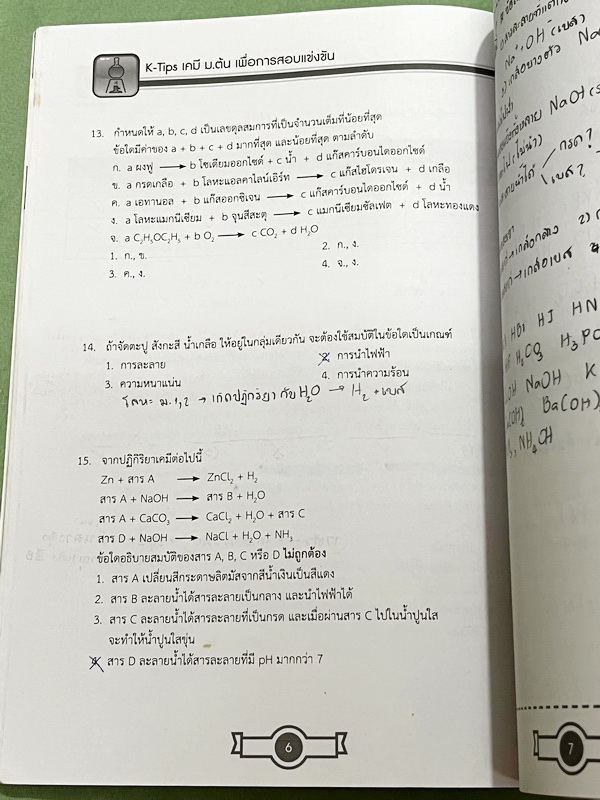 K-Tips เคมี ม.ต้น เพื่อการสอบแข่งขัน
13. กำหนดให้ a, b, c, d เป็นเลขดุลสมการที่เป็นจำนวนเต็มที่น้อยที่สุด
ข้อใดมีค่าของ a + b + c + d มากที่สุด และน้อยที่สุด ตามลำดับ
ก. a ผงฟู → b โซเดียมออกไซด์ + c น้ำ + d แก๊สคาร์บอนไดออกไซด์
ข. a กรดเกลือ + b โลหะแอลคาไลน์เอิร์ท → c แก๊สไฮโดรเจน + d เกลือ
ค. a เอทานอล + b แก๊สออกซิเจน → c แก๊สคาร์บอนไดออกไซด์ + d น้ำ
ง. a โลหะแมกนีเซียม + b จุนสีสะตุ → c แมกนีเซียมซัลเฟต + d โลหะทองแดง
จ. a C₂H₅OC₂H₅ + b O₂ → c CO₂ + d H₂O
1. ก., ข. 2. ก., ง.
3. ค., ง. 4. จ., ง.
14. ถ้าจัดตะปู สังกะสี น้ำเกลือ ให้อยู่ในกลุ่มเดียวกัน จะต้องใช้สมบัติในข้อใดเป็นเกณฑ์
1. การละลาย 2. การนำไฟฟ้า
3. ความหนาแน่น 4. การนำความร้อน
โลหะ ม.1,2 → เกิดปฏิกิริยา กับ H₂O → H₂ + เบส
15. จากปฏิกิริยาเคมีต่อไปนี้
Zn + สาร A → ZnCl₂ + H₂
สาร A + NaOH → สาร B + H₂O
สาร A + CaCO₃ → CaCl₂ + H₂O + สาร C
สาร D + NaOH → NaCl + H₂O + NH₃
ข้อใดอธิบายสมบัติของสาร A, B, C หรือ D ไม่ถูกต้อง
1. สาร A เปลี่ยนสีกระดาษลิตมัสจากสีน้ำเงินเป็นสีแดง
2. สาร B ละลายน้ำได้สารละลายเป็นกลาง และนำไฟฟ้าได้
3. สาร C ละลายน้ำได้สารละลายที่เป็นกรด และเมื่อผ่านสาร C ไปในน้ำปูนใส
จะทำให้น้ำปูนใสขุ่น
4. สาร D ละลายน้ำได้สารละลายที่มี pH มากกว่า 7
6
Na⁺, OH⁻ (เบส)
NaOH (s
กรด?
เบส?
HBr HI HN
H₂CO₃ H₃PO
OH NaOH K
Ba(OH)
NH₄OH
7